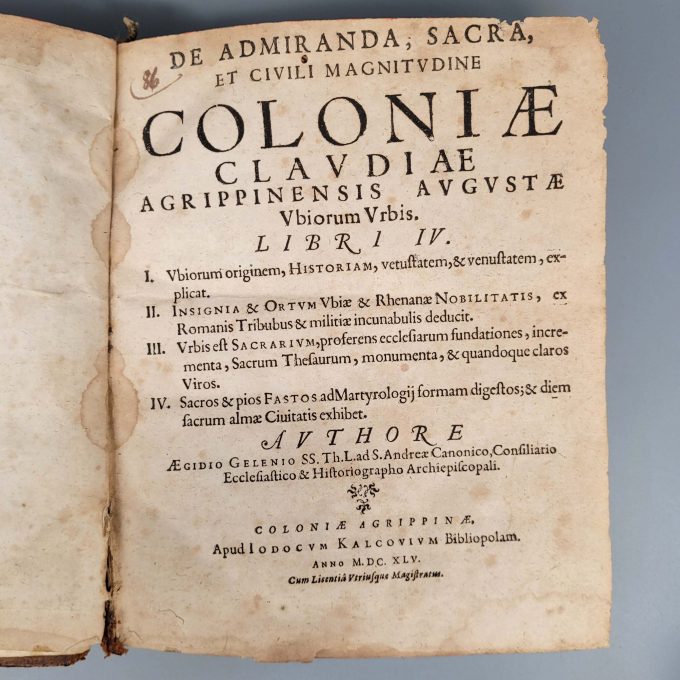 86
DE ADMIRANDA, SACRA,
ET CIVILI MAGNITVDINE
COLONIÆ
CLAVDIAE
AGRIPPINENSIS AVGVSTÆ
Vbiorum Vrbis.
LIBRI IV.
I. Vbiorum originem, HISTORIAM, vetustatem, & venustatem, ex-
plicat.
II. INSIGNIA & ORTVM Vbiæ & Rhenanæ NOBILITATIS, ex
Romanis Tribubus & militiæ incunabulis deducit.
III. Vrbis est SACRARIVM, proferens ecclesiarum fundationes, incre-
menta, Sacrum Thesaurum, monumenta, & quandoque claros
Viros.
IV. Sacros & pios FASTOS ad Martyrologij formam digestos; & diem
sacrum almæ Ciuitatis exhibet.
AVTHORE
ÆGIDIO GELENIO SS. Th. L. ad S. Andreæ Canonico, Consiliatio
Ecclesiastico & Historiographo Archiepiscopali.
COLONIÆ AGRIPPINÆ,
Apud IODOCVM KALCOVIVM Bibliopolam.
ANNO M.DC. XLV.
Cum Lisentiâ Vtriusque Magistratus.